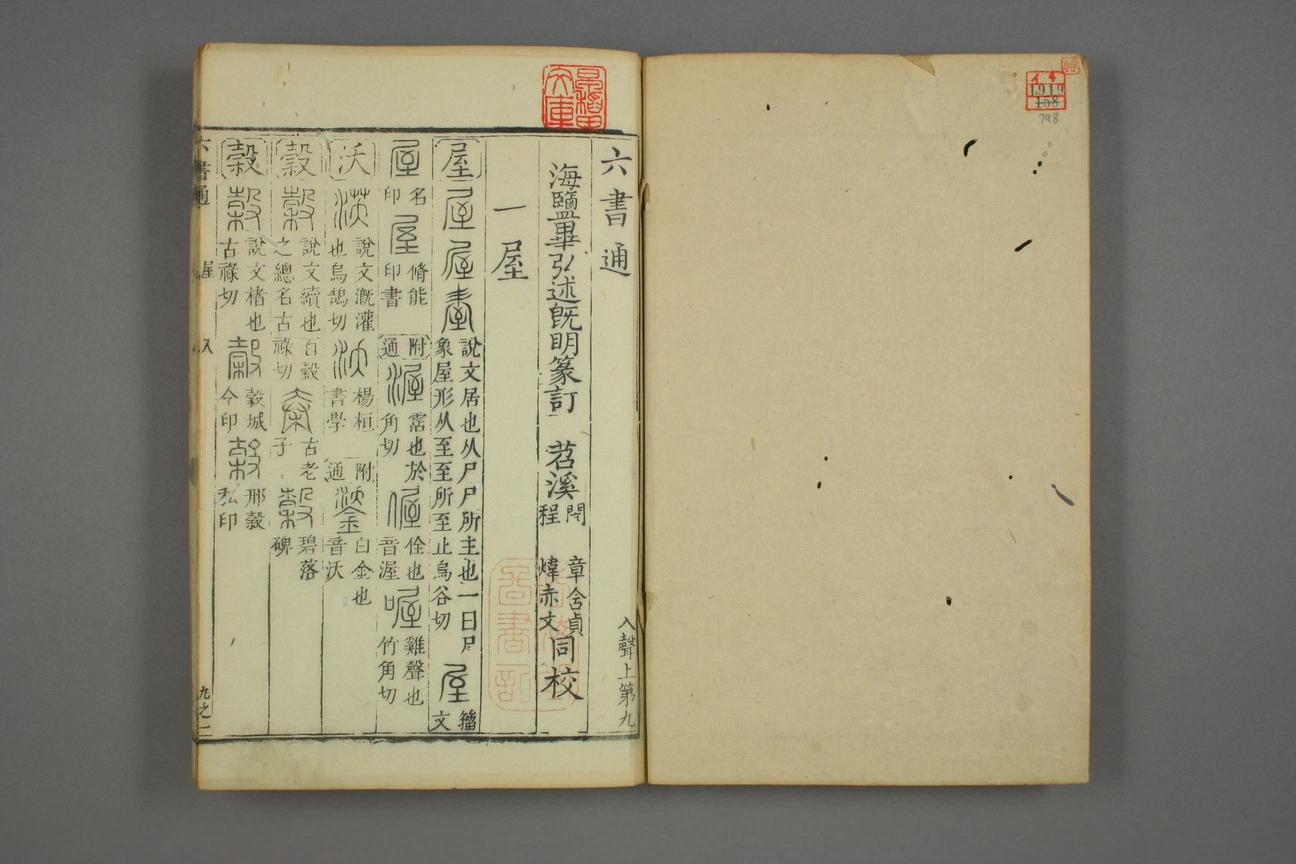 六書通 入聲上第九
海鹽畢弘述既明篆訂 苕溪 閔章含貞 程煒赤文 同校
一屋
屋 屋 屋 臺 說文居也从尸尸所主也一曰尸象屋形从至至所至止烏谷切 屋 籀文
屋 名印 屋 脩能印書 附通 渥 霑也於角切 偓 佺也音渥 喔 雞聲也竹角切
沃 沃 說文溉灌也烏鵠切 沃 楊桓書學 附通 鋈 白金也音沃
穀 穀 說文續也百穀之總名古祿切 古老子 穀 碧落碑
榖 榖 說文楮也古祿切 榖 穀城令印 榖 邢穀私印
六書通 屋 入 九之一
1919
158
798